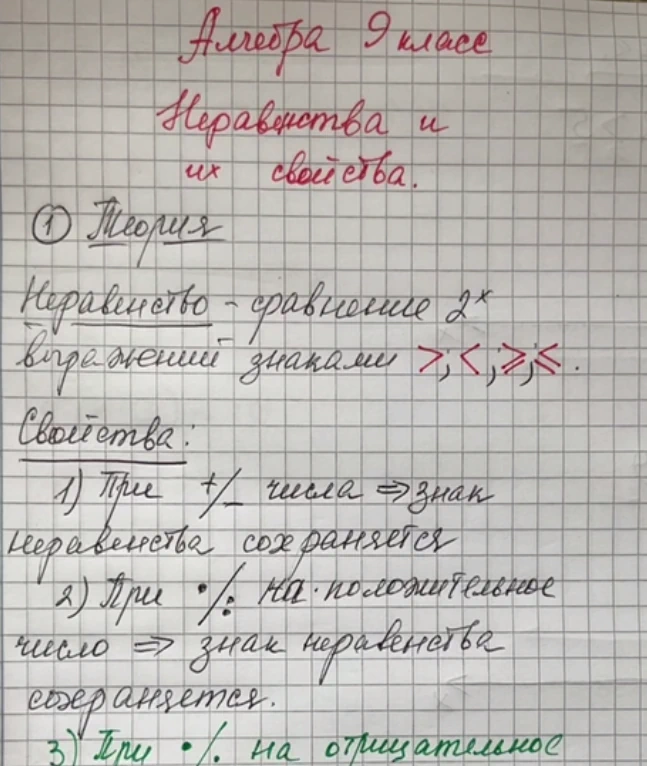 Алгебра 9 класс
Неравенства и
их свойства.
① Теория
Неравенство - сравнение 2х
выражений знаками >; <; ⩾; ⩽.
Свойства:
1) При +/- числа ⇒ знак
неравенства сохраняется
2) При •/: на положительное
число ⇒ знак неравенства
сохраняется.
3) При •/: на отрицательное